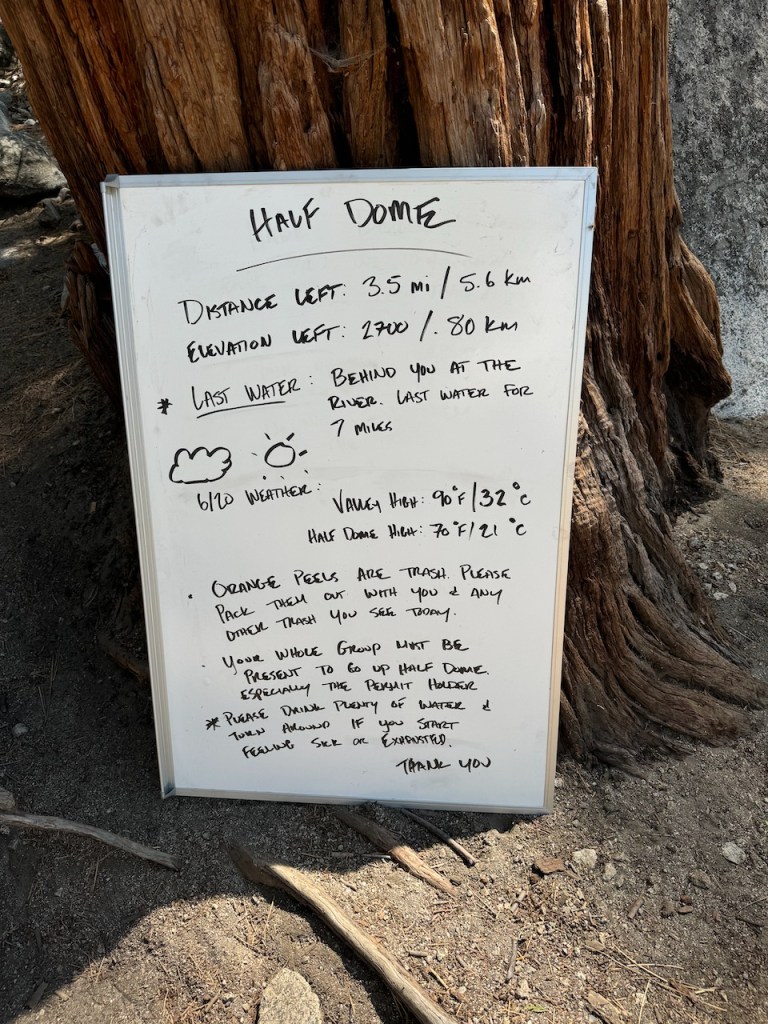 HALF DOME
DISTANCE LEFT: 3.5 mi / 5.6 Km
ELEVATION LEFT: 2700 / .80 Km
* LAST WATER: BEHIND YOU AT THE
RIVER. LAST WATER FOR
7 MILES
6/20 WEATHER:
VALLEY HIGH: 90°F/32°C
HALF DOME HIGH: 70°F/21°C
• ORANGE PEELS ARE TRASH. PLEASE
PACK THEM OUT WITH YOU & ANY
OTHER TRASH YOU SEE TODAY.
• YOUR WHOLE GROUP MUST BE
PRESENT TO GO UP HALF DOME.
ESPECIALLY THE PERMIT HOLDER
* PLEASE DRINK PLENTY OF WATER &
TURN AROUND IF YOU START
FEELING SICK OR EXHAUSTED.
THANK YOU